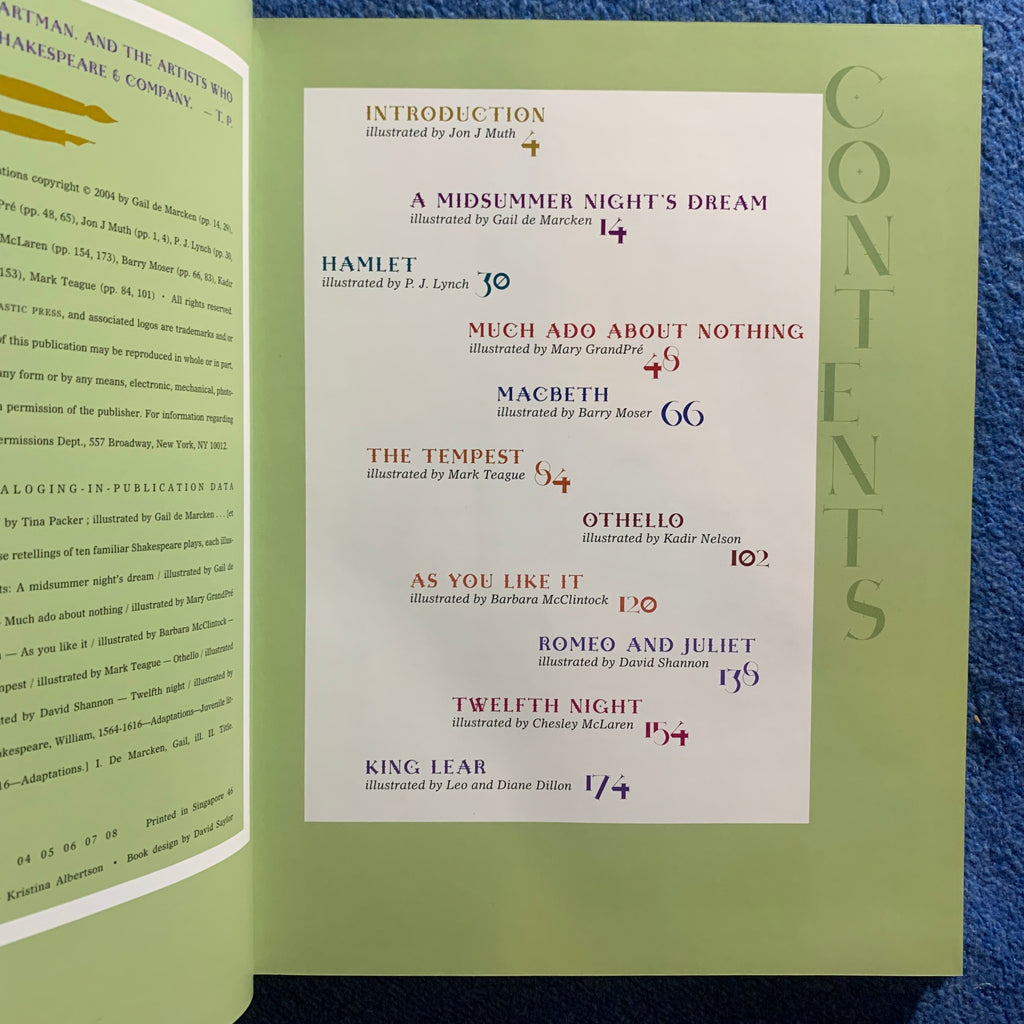 ARTMAN, AND THE ARTISTS WHO
SHAKESPEARE & COMPANY. — T. P.
copyright © 2004 by Gail de Marcken (pp. 14, 29),
Pré (pp. 48, 65), Jon J Muth (pp. 1, 4), P. J. Lynch (pp. 30,
McLaren (pp. 154, 173), Barry Moser (pp. 66, 83), Kadir
153), Mark Teague (pp. 84, 101) • All rights reserved.
PRESS, and associated logos are trademarks and/or
of this publication may be reproduced in whole or in part,
any form or by any means, electronic, mechanical, photo-
permission of the publisher. For information regarding
Permissions Dept., 557 Broadway, New York, NY 10012.
ALOGING-IN-PUBLICATION DATA
by Tina Packer ; illustrated by Gail de Marcken . . . [et
retellings of ten familiar Shakespeare plays, each illus-
A midsummer night's dream / illustrated by Gail de
Much ado about nothing / illustrated by Mary GrandPré
— As you like it / illustrated by Barbara McClintock —
/ illustrated by Mark Teague — Othello / illustrated
by David Shannon — Twelfth night / illustrated by
William, 1564-1616—Adaptations—Juvenile lit-
16—Adaptations.] I. De Marcken, Gail, ill. II. Title.
04 05 06 07 08 Printed in Singapore 46
Kristina Albertson • Book design by David Saylor
CONTENTS
INTRODUCTION
illustrated by Jon J Muth 4
A MIDSUMMER NIGHT'S DREAM
illustrated by Gail de Marcken 14
HAMLET
illustrated by P. J. Lynch 30
MUCH ADO ABOUT NOTHING
illustrated by Mary GrandPré 48
MACBETH
illustrated by Barry Moser 66
THE TEMPEST
illustrated by Mark Teague 84
OTHELLO
illustrated by Kadir Nelson
102
AS YOU LIKE IT
illustrated by Barbara McClintock 120
ROMEO AND JULIET
illustrated by David Shannon 138
TWELFTH NIGHT
illustrated by Chesley McLaren 154
KING LEAR
illustrated by Leo and Diane Dillon 174